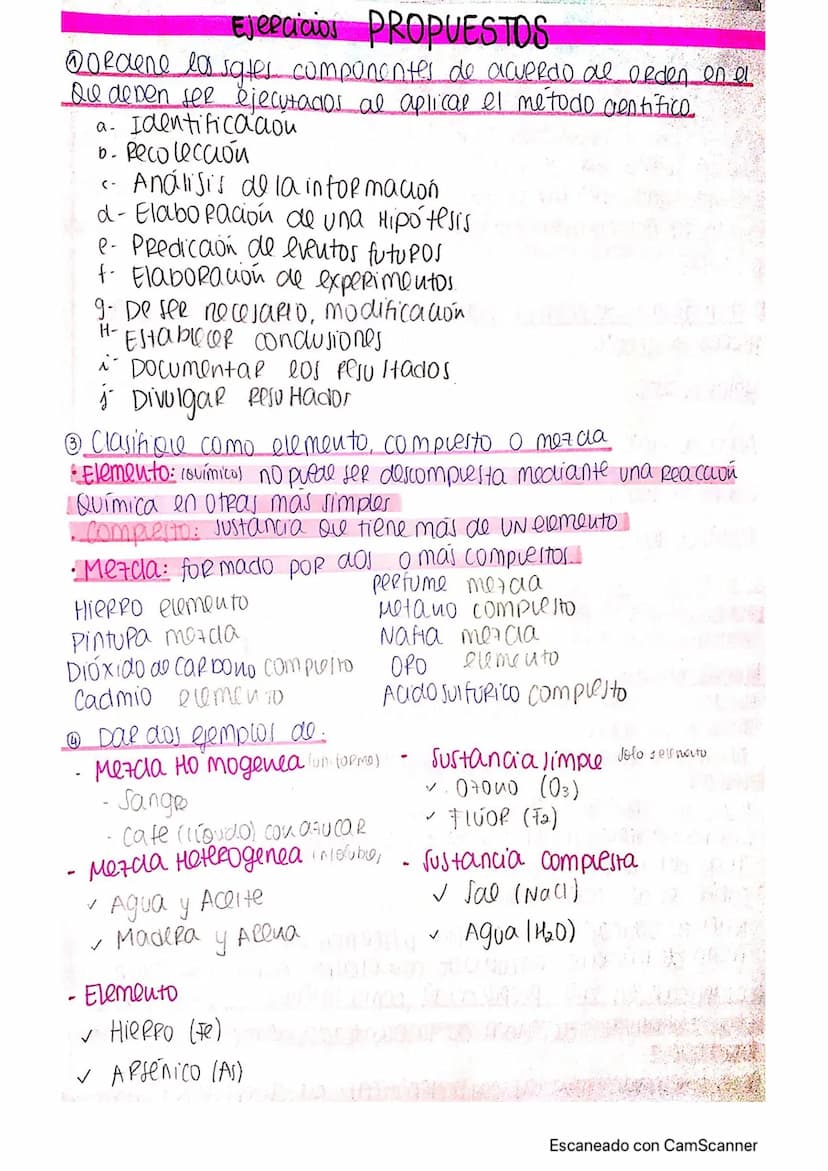 Ejercicios PROPUESTOS
① Ordene los sgtes componentes de acuerdo al orden en el
que deben ser ejecutados al aplicar el método científico.
a- Identificación
b- Recolección
c- Análisis de la información
d- Elaboración de una Hipótesis
e- Predicción de eventos futuros
f- Elaboración de experimentos
g- De ser necesario, modificación
H- Establecer conclusiones
i- Documentar los resultados
j- Divulgar resultados
③ Clasifique como elemento, compuesto o mezcla
• Elemento: (químico) no puede ser descompuesta mediante una reacción
química en otras más simples
• Compuesto: sustancia que tiene más de UN elemento
• Mezcla: formado por dos o más compuestos.
Hierro elemento
Pintura mezcla
Dióxido de carbono compuesto
Cadmio elemento
Perfume mezcla
Metano compuesto
Nafta mezcla
Oro elemento
Acido sulfúrico compuesto
④ Dar dos ejemplos de:
- Mezcla Homogenea (uniforme)
- Sangre
- Café (líquido) con azúcar
- Mezcla Heterogenea (insoluble)
✓ Agua y Aceite
✓ Madera y Arena
- Elemento
✓ Hierro (Fe)
✓ Arsénico (As)
- Sustancia simple Solo 1 elemento
✓ Ozono (O₃)
✓ Flúor (F₂)
- Sustancia compuesta
✓ Sal (NaCl)
✓ Agua (H₂O)
Escaneado con CamScanner